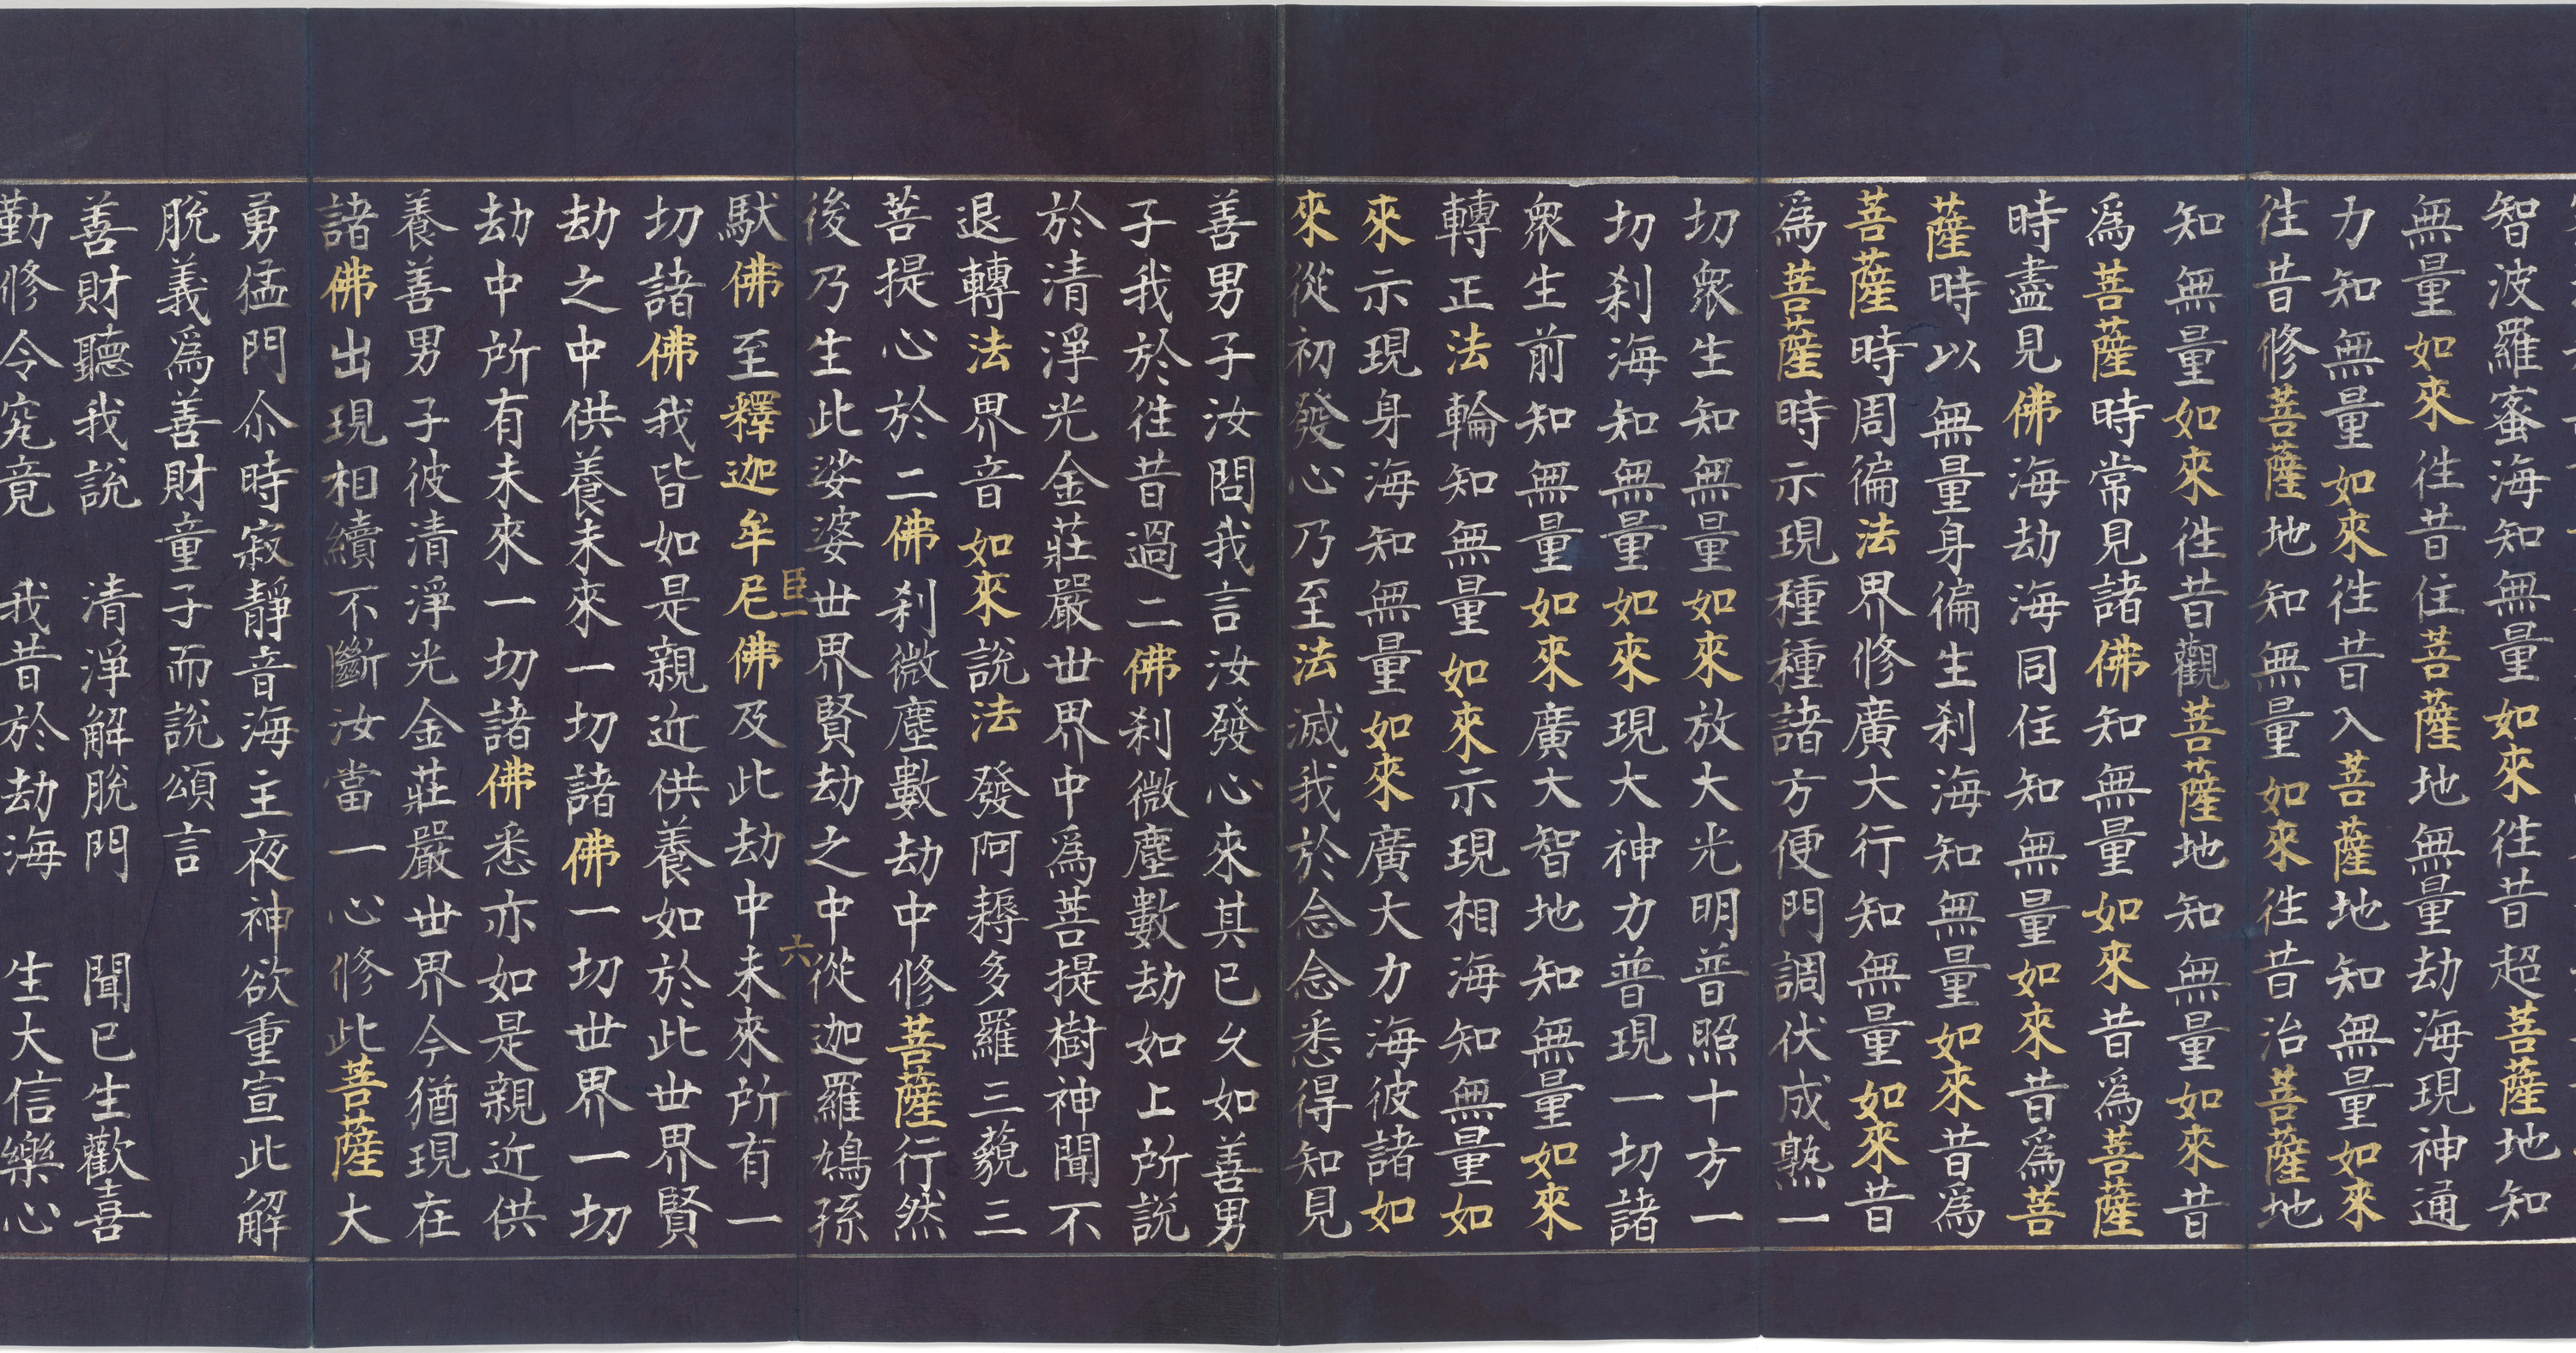 智波羅蜜海知無量如來往昔超菩薩地知
無量如來往昔住菩薩地無量劫海現神通
力知無量如來往昔入菩薩地知無量如來
往昔修菩薩地知無量如來往昔治菩薩地
知無量如來往昔觀菩薩地知無量如來昔
為菩薩時常見諸佛知無量如來昔為菩薩
時盡見佛海劫海同住知無量如來昔為菩
薩時以無量身徧生刹海知無量如來昔為
菩薩時周徧法界修廣大行知無量如來昔
為菩薩時示現種種諸方便門調伏成熟一
切衆生知無量如來放大光明普照十方一
切刹海知無量如來現大神力普現一切諸
衆生前知無量如來廣大智地知無量如來
轉正法輪知無量如來示現相海知無量如
來示現身海知無量如來廣大力海彼諸如
來從初發心乃至法滅我於念念悉得知見
善男子汝問我言汝發心來其已久如善男
子我於往昔過二佛刹微塵數劫如上所說
於清淨光金莊嚴世界中為菩提樹神聞不
退轉法界音如來說法發阿耨多羅三藐三
菩提心於二佛刹微塵數劫中修菩薩行然
後乃生此娑婆世界賢劫之中從迦羅鳩孫
馱佛至釋迦牟尼佛及此劫中未來所有一
臣一 六
切諸佛我皆如是親近供養如於此世界賢
劫之中供養未來一切諸佛一切世界一切
劫中所有未來一切諸佛悉亦如是親近供
養善男子彼清淨光金莊嚴世界今猶現在
諸佛出現相續不斷汝當一心修此菩薩大
勇猛門尒時寂靜音海主夜神欲重宣此解
脫義為善財童子而說頌言
善財聽我說 清淨解脫門 聞已生歡喜
勤修令究竟 我昔於劫海 生大信樂心